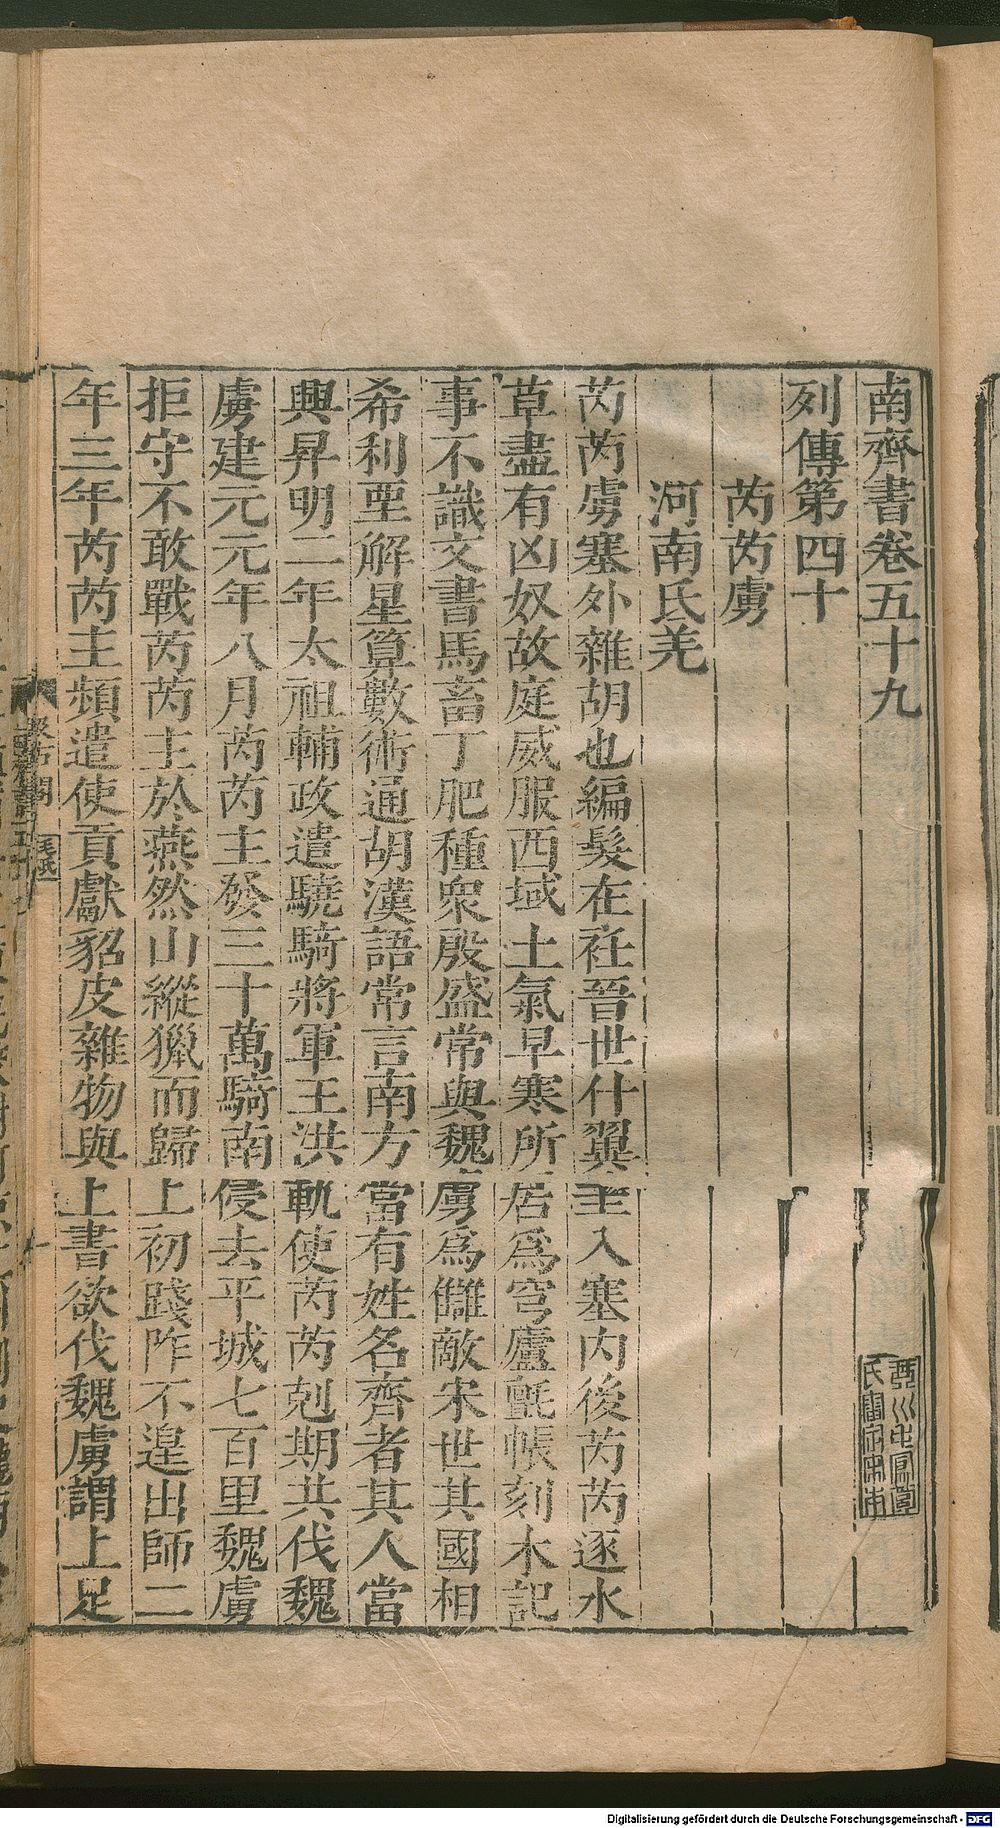 南齊書卷五十九
列傳第四十
芮芮虜
河南氐羌
芮芮虜塞外雜胡也編髮在衽晉世什翼圭入塞内後芮芮逐水
草盡有凶奴故庭威服西域土氣早寒所居爲穹廬氈帳刻木記
事不識文書馬畜丁肥種衆殷盛常與魏虜爲讎敵宋世其國相
希利垔解星算數術通胡漢語常言南方當有姓名齊者其人當
興昇明二年太祖輔政遣驍騎將軍王洪軌使芮芮剋期共伐魏
虜建元元年八月芮芮主發三十萬騎南侵去平城七百里魏虜
拒守不敢戰芮芮主於燕然山縱獵而歸上初踐阼不遑出師二
年三年芮芮主頻遣使貢獻貂皮雜物與上書欲伐魏虜謂上足
汲古閣
毛氏
Digitalisierung gefördert durch die Deutsche Forschungsgemeinschaft - DFG